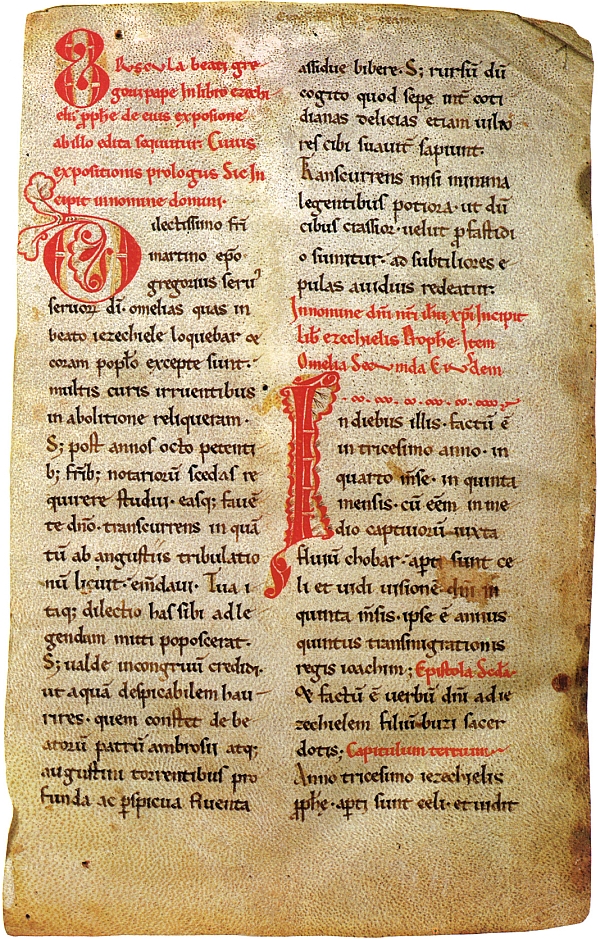 Epistola beati gre
gorii pape In libro ezechi
elis ꝓphe de eius exposione
ab illo edita sequitur. Cuius
expositionis prologus Sic In
cipit innomine domini.
Dilectissimo fr̄i
martino ep̄o
gregorius seru᾽
seruoꝝ dī. omelias quas in
beato iezechiele loquebar &
coram popl̄o excepte sunt.
multis curis irruentibus
in abolitione reliqueram.
S; post annos octo petenti
b; fr̄ib; notariorū scedas re
quirere studui. easq; fauē
te dn̄o. transcurrens in quā
tū ab angustiis tribulatio
nū licuit. em̄daui. Tua i
taq; dilectio has sibi ad le
gendam mitti poposcerat.
S; ualde incongruū credidi.
ut aquā despicabilem hau
rires. quem constet de be
atorū patrū ambrosii atq;
augustini torrentibus pro
funda ac ꝑspicua fluenta
assidue bibere. S; rursū dū
cogito quod sepe int̄ coti
dianas delicias etiam uilio
res cibi suauiꝰ sapiunt.
Transcurrens misi minima
legentibus potiora. ut dū
cibus crassior. uelut ꝓ fastidi
o sumitur. ad subtiliores e
pulas auidius redeatur.
Innomine dn̄i nr̄i ih̄u xp̄i Incipit
lib̄ ezechielis Prophe. Item
Omelia Secunda Eiusdem
In diebus illis. factū ē
in tricesimo anno. in
quarto m̄se. in quinta
mensis. cū eēm in me
dio captiuorū iuxta
fluiū chobar. apti sunt ce
li et uidi uisionē dn̄i in
quinta m̄sis. ipse ē annus
quintus transmigrationis
regis ioachim; Epistola Scd̄a
& factū ē uerbū dn̄i ad ie
zechielem filiū buzi sacer
dotis; Capitulum tertium
Anno tricesimo iezechielis
ꝓphe. apti sunt celi. et uidit